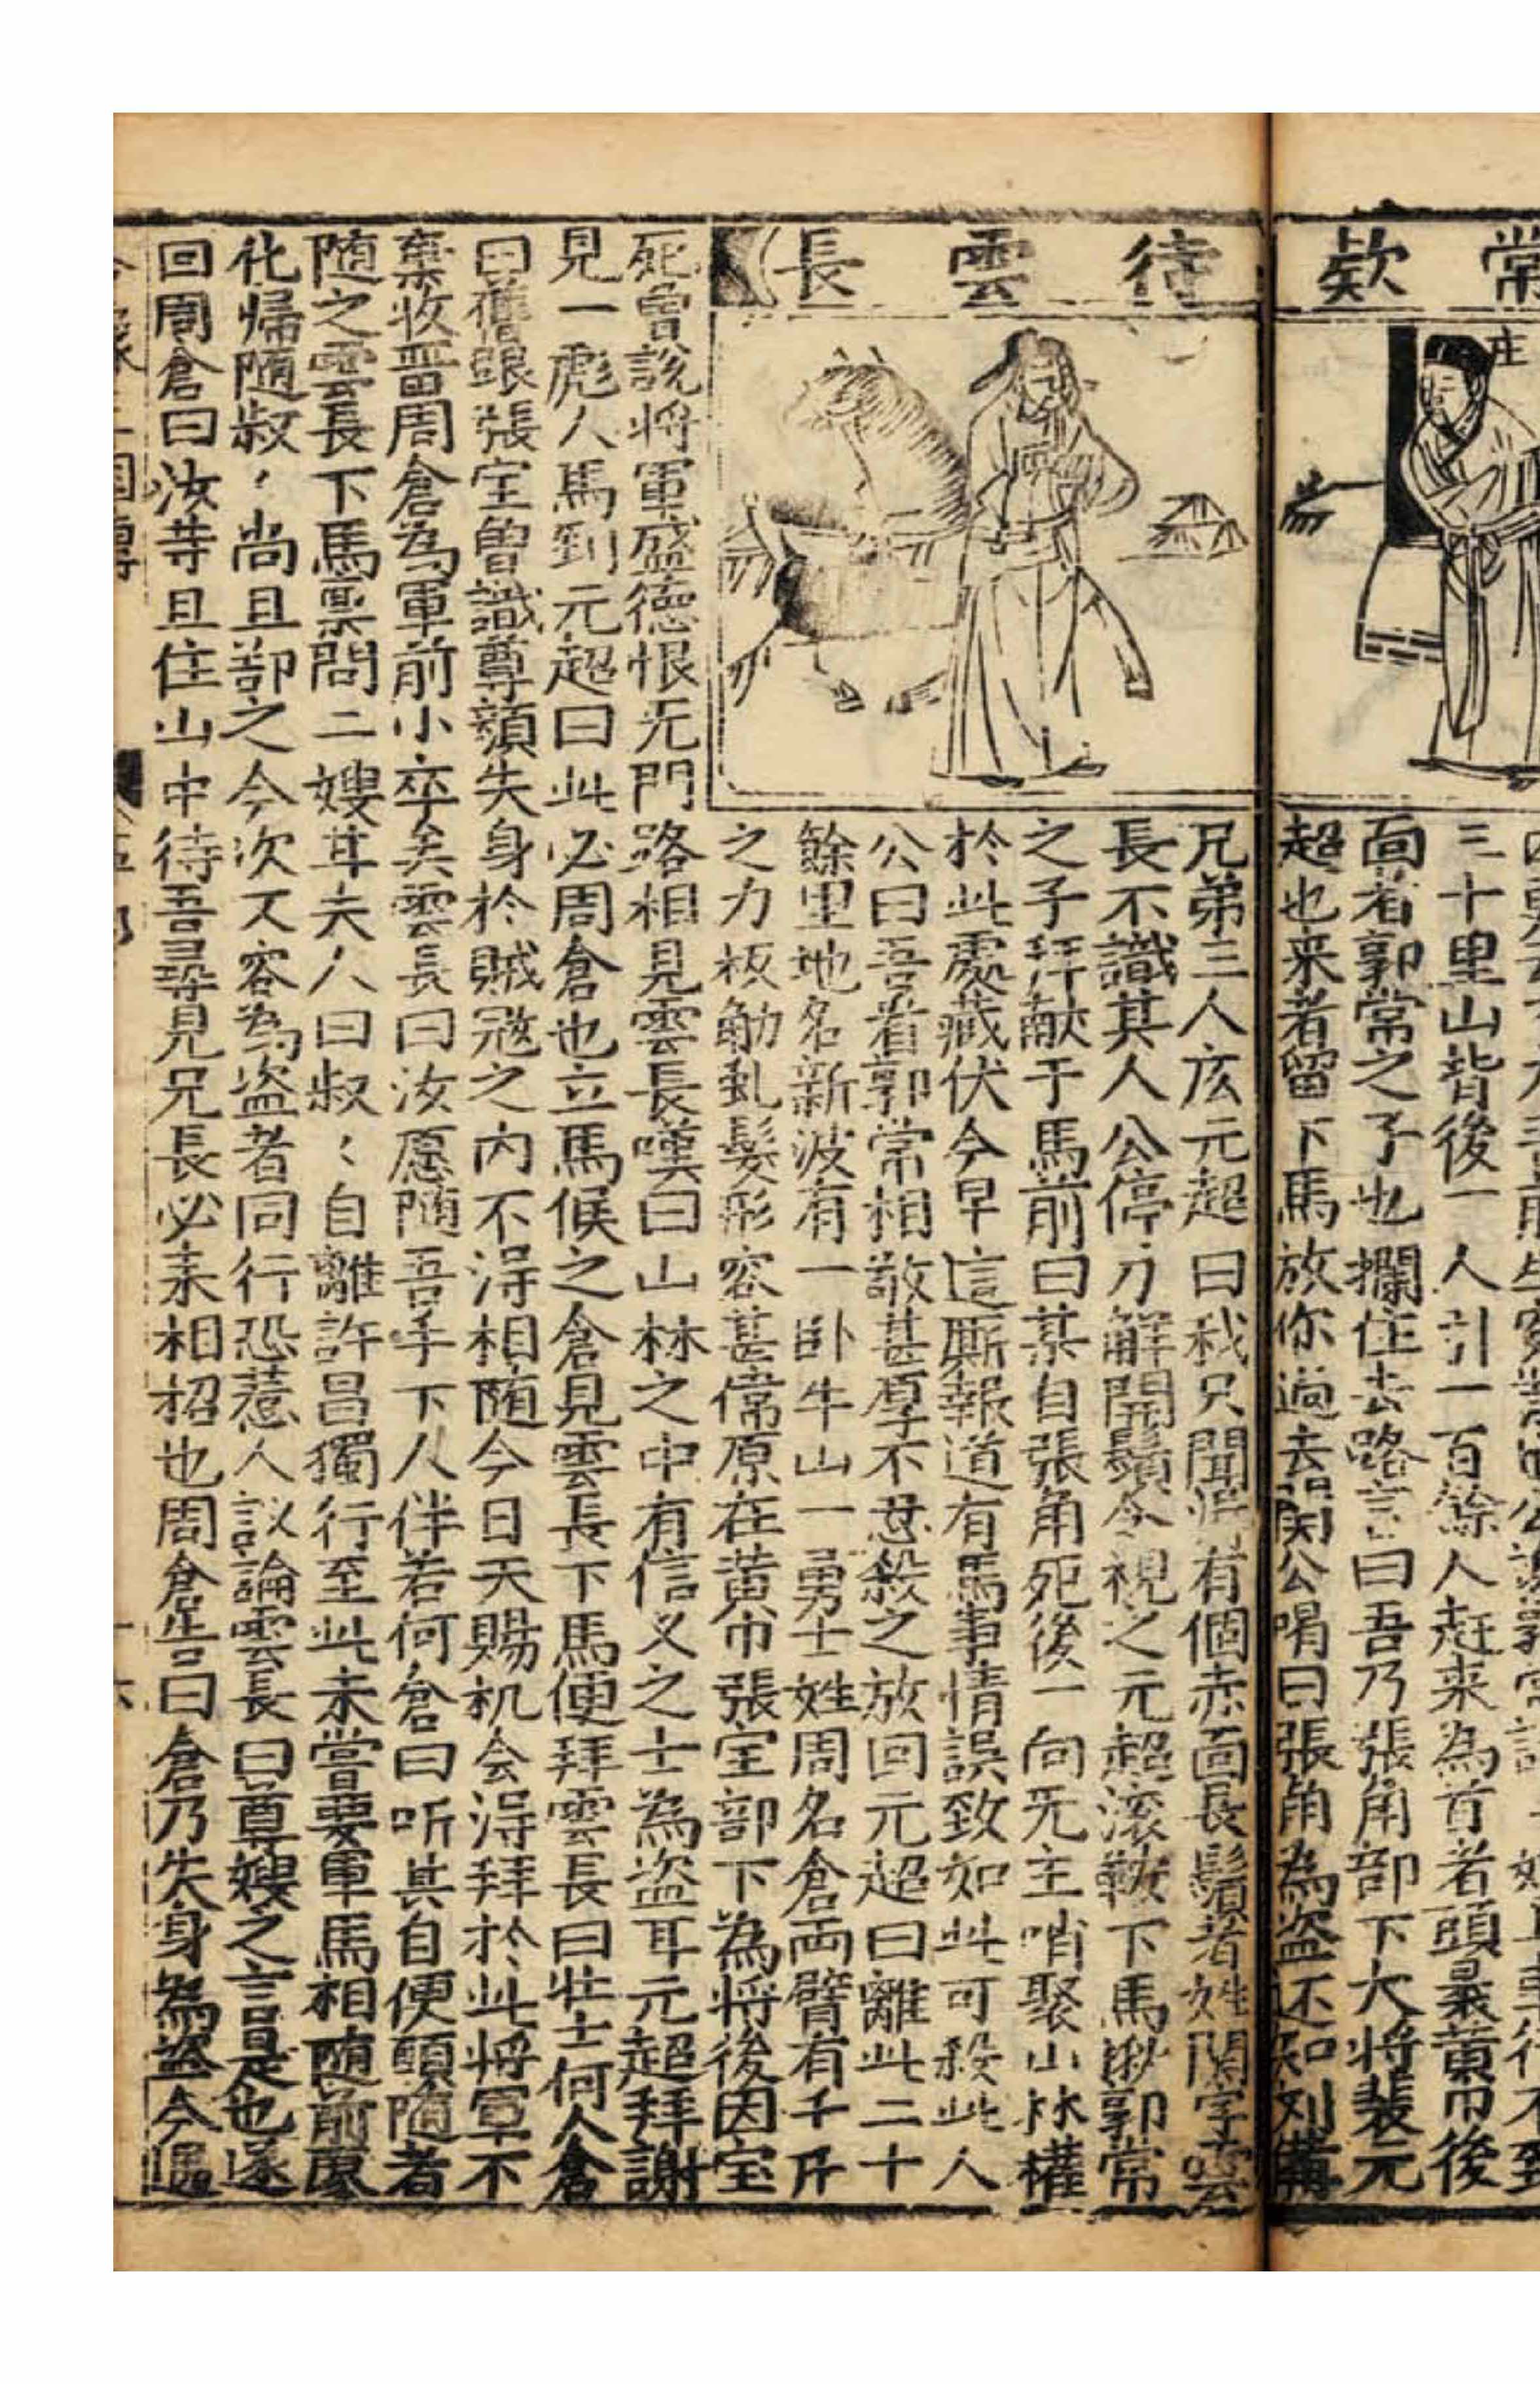 常欵
待雲長
庄
三十里山背後一人引一百餘人赶来為首者頭裹黄巾後
面者郭常之子也攔住去路言曰吾乃張角部下大将裴元
超也来者留下馬放你過去関公喝曰張角為盗还知刘備
兄弟三人庅元超曰我只聞淂有個赤面長鬚者姓関字雲
長不識其人公停刀觧開鬚令視之元超滚鞍下馬揪郭常
之子拜献于馬前曰某自張角死後一向旡主哨聚山林權
於此處藏伏今早這厮報道有馬事情誤致如此可殺此人
公曰吾看郭常相敬甚厚不忍殺之放回元超曰離此二十
餘里地名新波有一卧牛山一勇士姓周名倉両臂有千斤
之力板觔虬髪形容甚偉原在黄巾張宝部下為将後因宝
死曾說将軍盛德恨旡門路相見雲長嘆曰山林之中有信义之士為盗耳元超拜謝
見一彪人馬到元超曰此必周倉也立馬候之倉見雲長下馬便拜雲長曰壮士何人倉
曰舊跟張宝曾識尊顔失身於賊冦之内不淂相随今日天賜机会淂拜於此将軍不
棄收畱周倉為軍前小卒矣雲長曰汝愿随吾手下人伴若何倉曰听其自便頋随者
随之雲長下馬禀問二嫂甘夫人曰叔〻自離許昌獨行至此未嘗要軍馬相随前廖
化帰随叔〻尚且郤之今次又容為盗者同行恐惹人議論雲長曰尊嫂之言是也遂
回周倉曰汝等且住山中待吾尋見兄長必来相招也周倉告曰倉乃失身為盗今遇